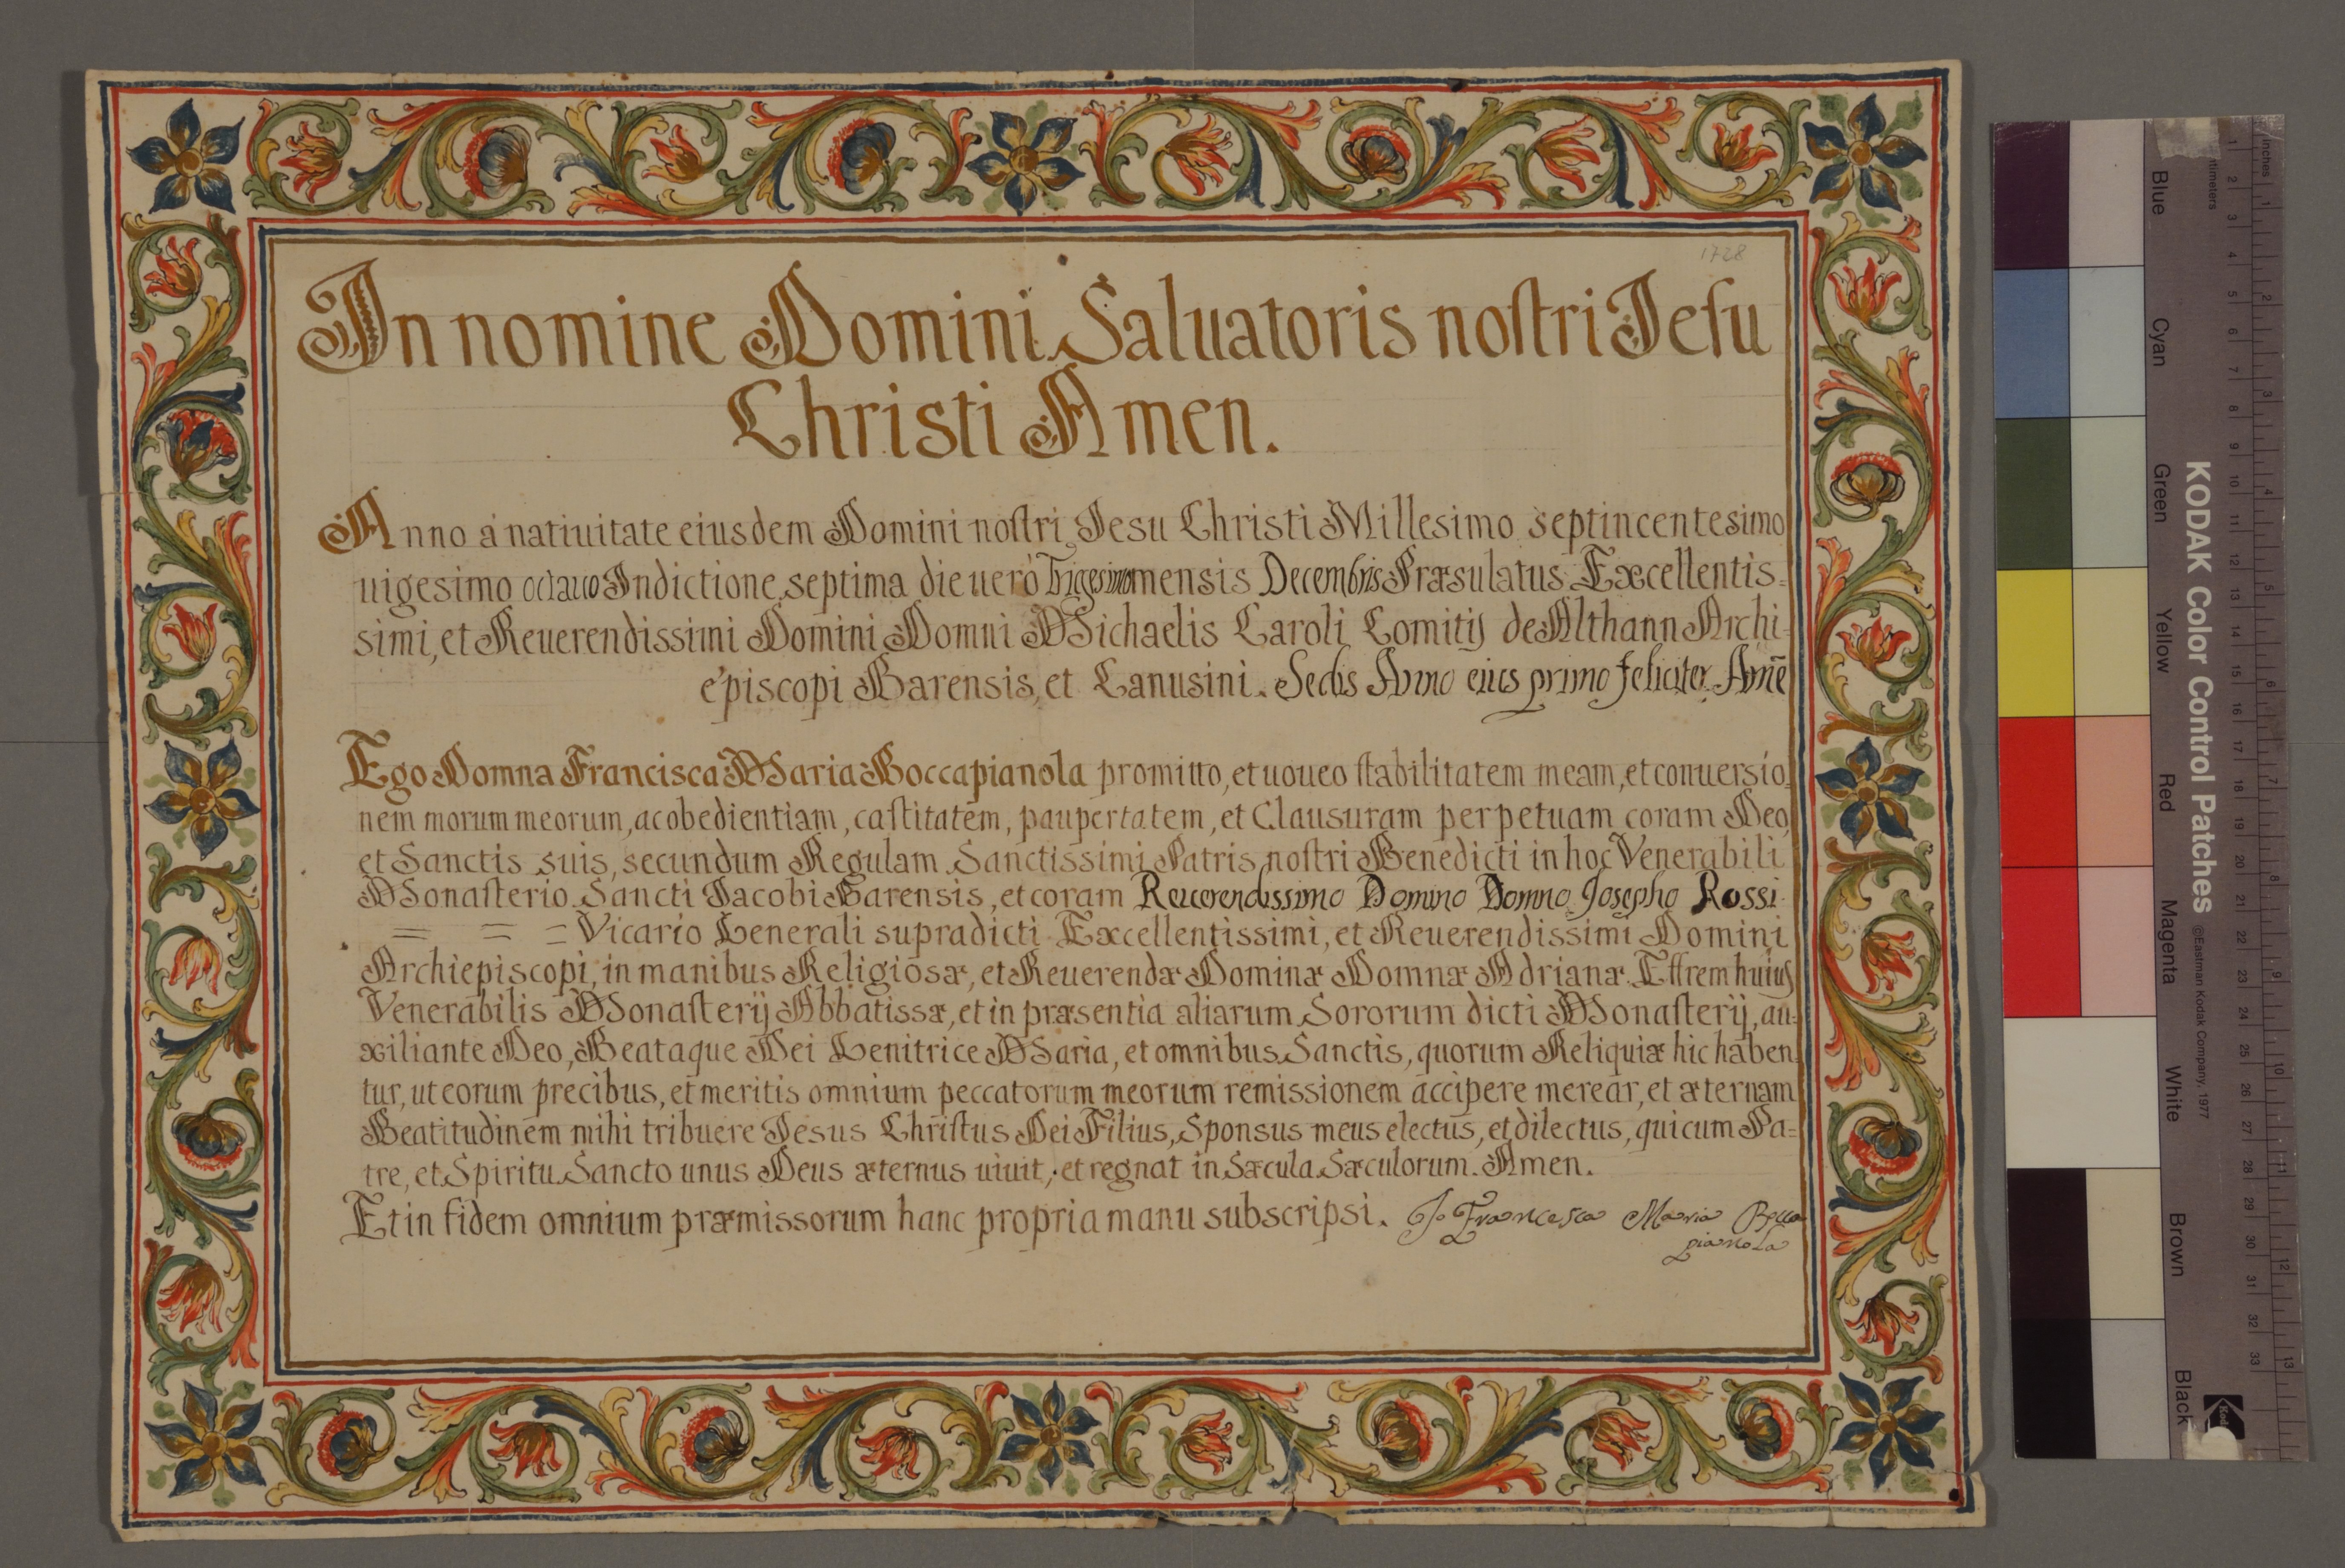 1728
In nomine Domini Saluatoris noſtri Jeſu
Christi Amen.
Anno a natiuitate eiusdem Domini noſtri Jesu Christi Millesimo septincentesimo
uigesimo octauo Indictione septima die uero Trigesimo mensis Decembris Præsulatus Excellentis=
simi, et Reuerendissimi Domini Domni Michaelis Caroli Comitis de Althann Archi=
episcopi Barensis, et Canusini. Sedis Anno eius primo feliciter Amē
Ego Domna Francisca Maria Boccapianola promitto, et uoueo ſtabilitatem meam, et conuersio=
nem morum meorum, ac obedientiam, caſtitatem, paupertatem, et Clausuram perpetuam coram Deo,
et Sanctis suis, secundum Regulam Sanctissimi Patris noſtri Benedicti in hoc Venerabili
Monaſterio Sancti Jacobi Barensis, et coram Reuerendissimo Domino Domno Josepho Rossi
= = = Vicario Generali supradicti Excellentissimi, et Reuerendissimi Domini
Archiepiscopi, in manibus Religiosæ, et Reuerendæ Dominæ Domnæ Adrianæ Effrem huius
Venerabilis Monaſterij Abbatissæ, et in præsentia aliarum Sororum dicti Monaſterij, au=
xiliante Deo, Beataque Dei Genitrice Maria, et omnibus Sanctis, quorum Reliquiæ hic haben=
tur, ut eorum precibus, et meritis omnium peccatorum meorum remissionem accipere merear, et æternam
Beatitudinem mihi tribuere Jesus Chriſtus Dei Filius, Sponsus meus electus, et dilectus, qui cum Pa=
tre, et Spiritu Sancto unus Deus æternus uiuit, et regnat in Sæcula Sæculorum. Amen.
Et in fidem omnium præmissorum hanc propria manu subscripsi. Io Francesca Maria Bocca
pianola
KODAK Color Control Patches
©Eastman Kodak Company, 1977
Blue
Cyan
Green
Yellow
Red
Magenta
White
Brown
Black
Inches
1 2 3 4 5 6 7 8 9 10 11 12 13
1 2 3 4 5 6 7 8 9 10 11 12 13 14 15 16 17 18 19 20 21 22 23 24 25 26 27 28 29 30 31 32 33